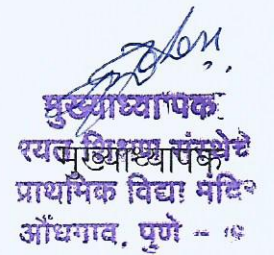 मुख्याध्यापक
रयत शिक्षण संस्थेचे
मुख्याध्यापक
प्राथमिक विद्या मंदिर
औंधगाव, पुणे -